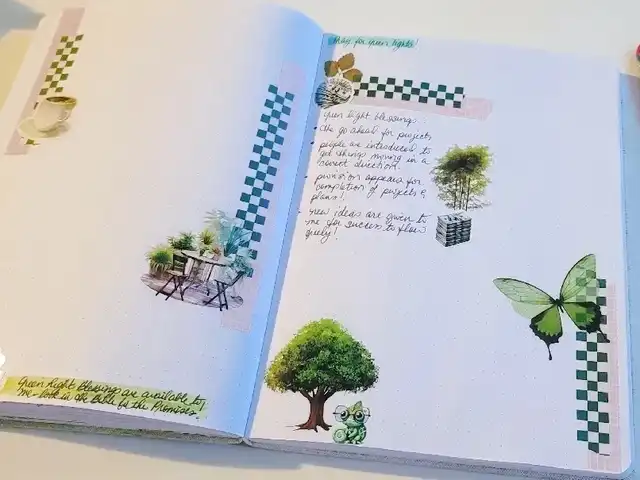 Green Light Blessings are available to
me look in the Bible for the Promises!
pray for green lights!
green light blessings...
- the go ahead for projects
- people are introduced to
get things moving in a
correct direction.
- provision appears for
completion of projects &
plans!
- new ideas are given to
me for success to flow